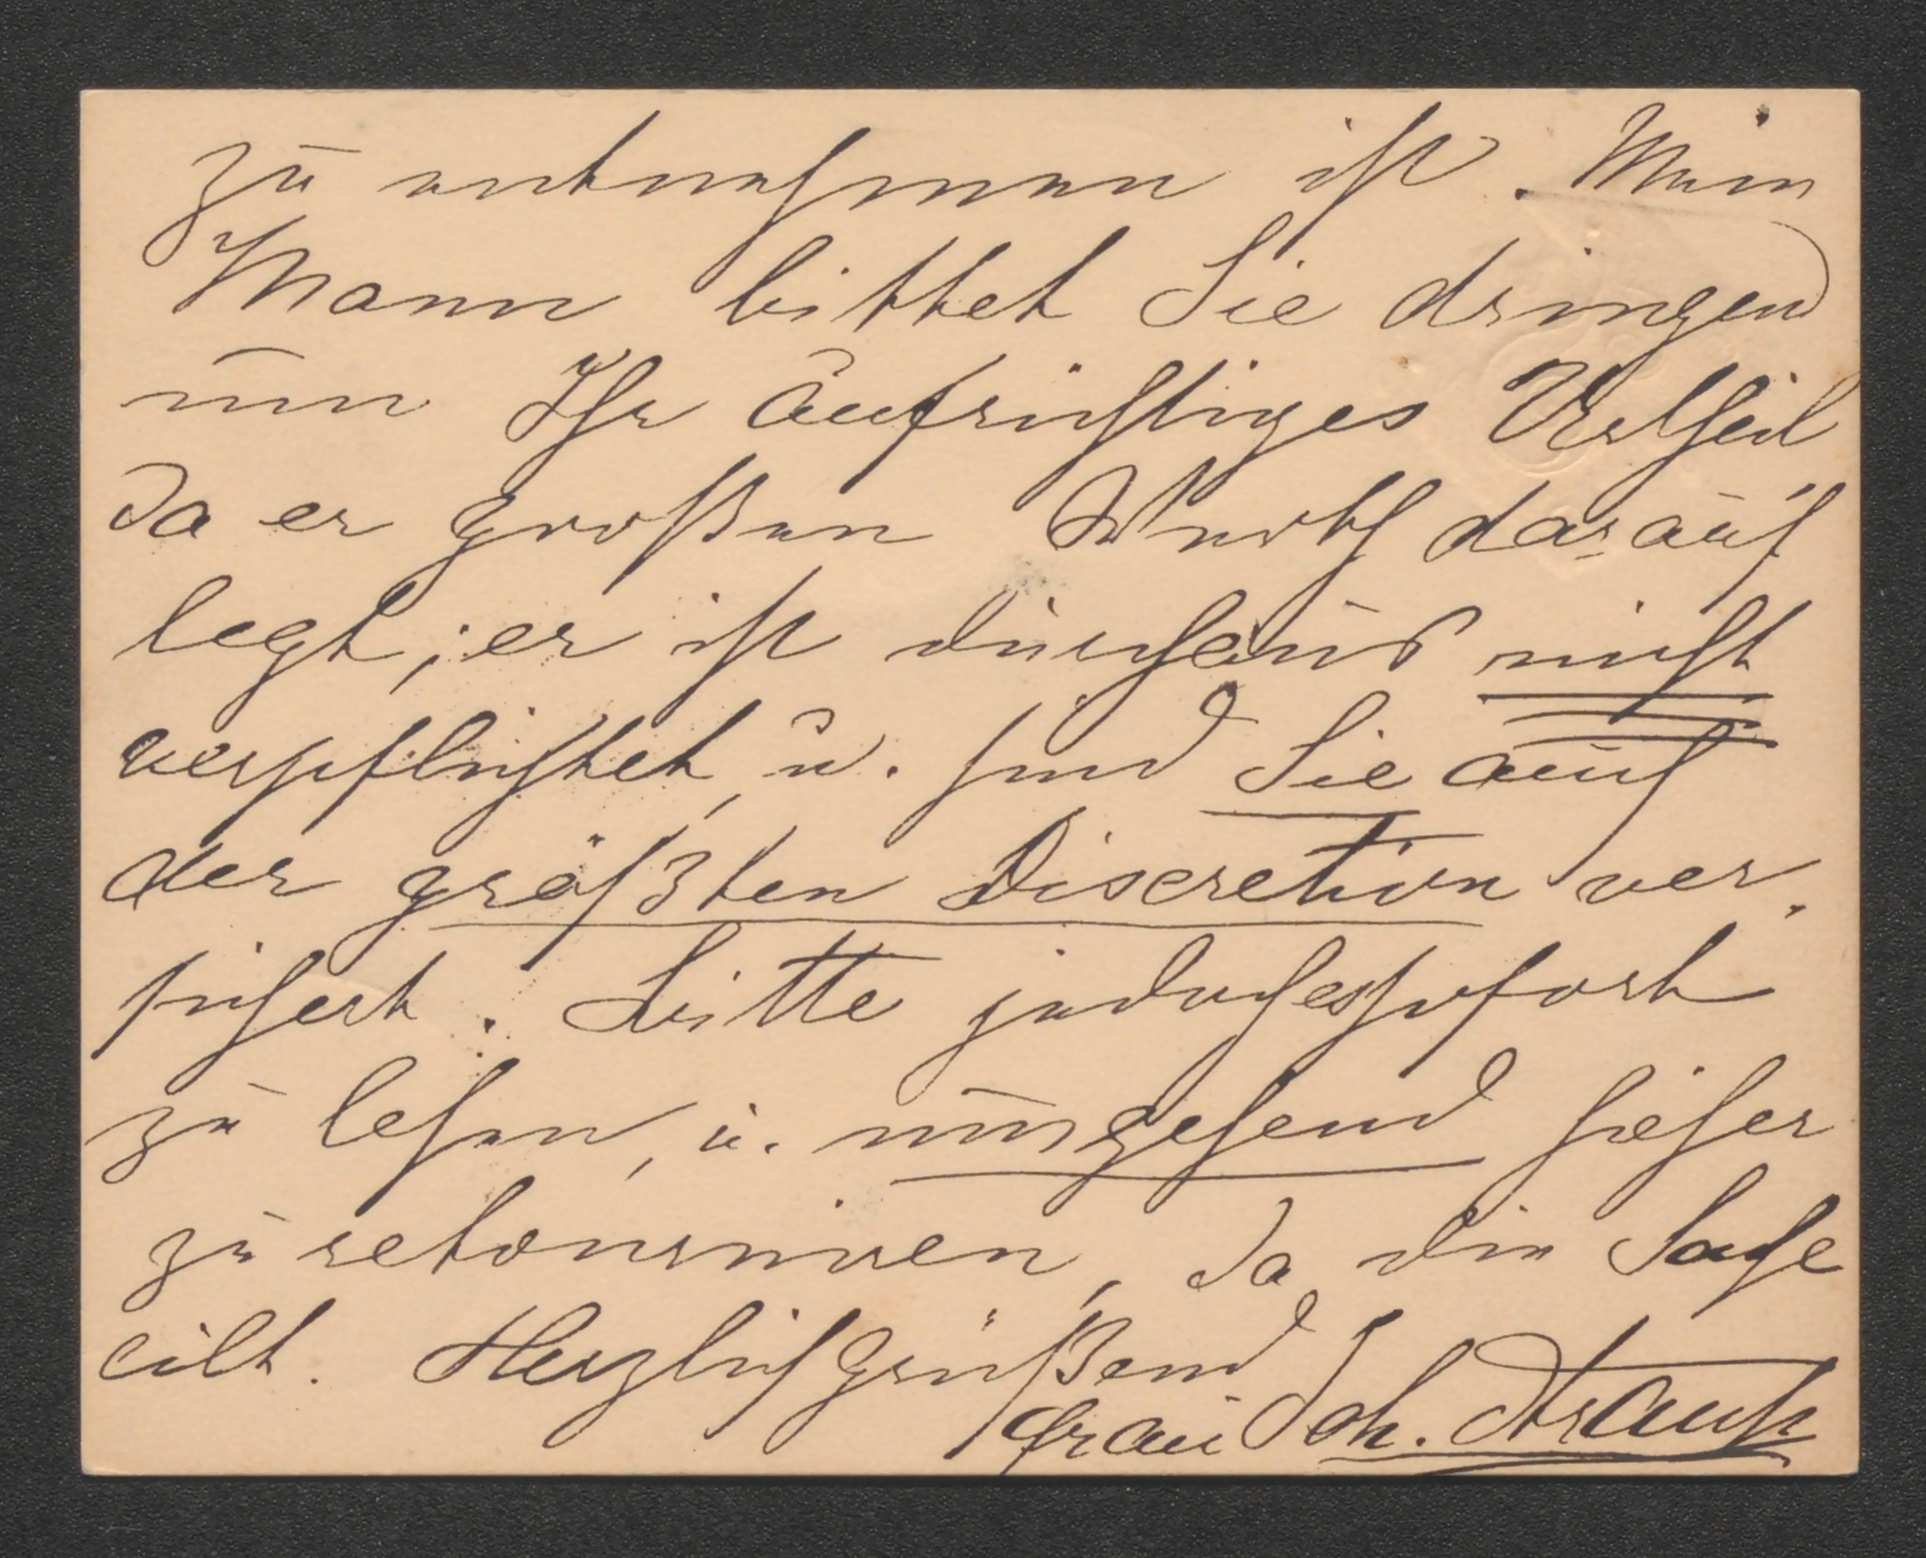 zu entnehmen ist. Mein
Mann bittet Sie dringend
um Ihr aufrichtiges Urtheil
da er großen Werth darauf
legt; er ist durchaus nicht
verpflichtet, u. sind Sie auf
der größten Discretion ver-
sichert. Bitte jedoch es sofort
zu lesen, u. umgehend hieher
zu retourniren, da die Sache
eilt. Herzlich grüßend
Frau Joh. Strauß